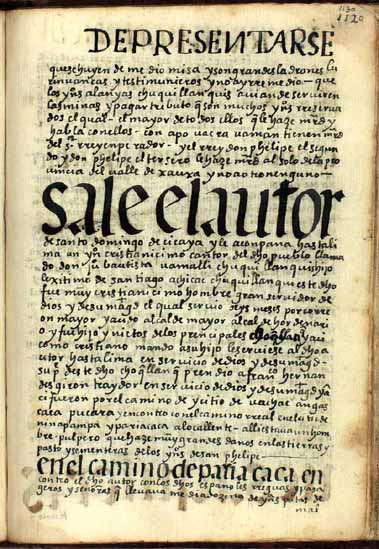 1130
1120
DEPRESENTARSE
que se huyen de me dio misa y son grandes ladrones lu
y testimunieros y no ay rremedio – que
los yns alanyas chuquillanquis auian de seruir en
las minas y pagar tributo q son muchos yns rreserua
dos el qual – el mayor de todos ellos q le haze mrd y
habla con ellos – con apo uacra uaman tienen mrd
del sr rrey enperador – y el rrey don phelipe el segun
do y don phelipe el tersero le haze mrd al solo de la pro
uincia del ualle de xauxa y no a otro ninguno –
sale el autor
de santo domingo de cicaya y le aconpaña hasta li
ma un yn cristianicimo cantor del dho pueblo llama
do don juo bautista uamalli chuqui llanquis hijo
lexitimo de santiago achicac chuquillanqui este dho
fue muy cristianicimo hombre gran seruidor de
dios y de su magd el qual siruio tres meses por corre
on mayor y a cido alcalde mayor alcalde hordenario
y fue hijo y nietos de los prencipales chogllan y aci
como cristiano mando a su hijo le seruiese al dho a
utor hasta lima en seruicio de dios y de su magd –
deste dho chogllan q prendio a franco hernan
des giron traydor en seruicio de dios y de su magd y a
ci fueron por el camino de y citio de uachac angas
caca pucara y encontro con el camino rreal en el citio de
nina panpa y pariacaca alo calluete – alli estaua un hom
bre pulpero que haze muy grandes danos en las tierras y
pasto y sementeras de los yns de san phelipe –
en el camino de paria caca en
contro el dho autor con los dhos españoles rreguas y pasa
geros y señoras q lleuaua media dozena de yns putas de
mas